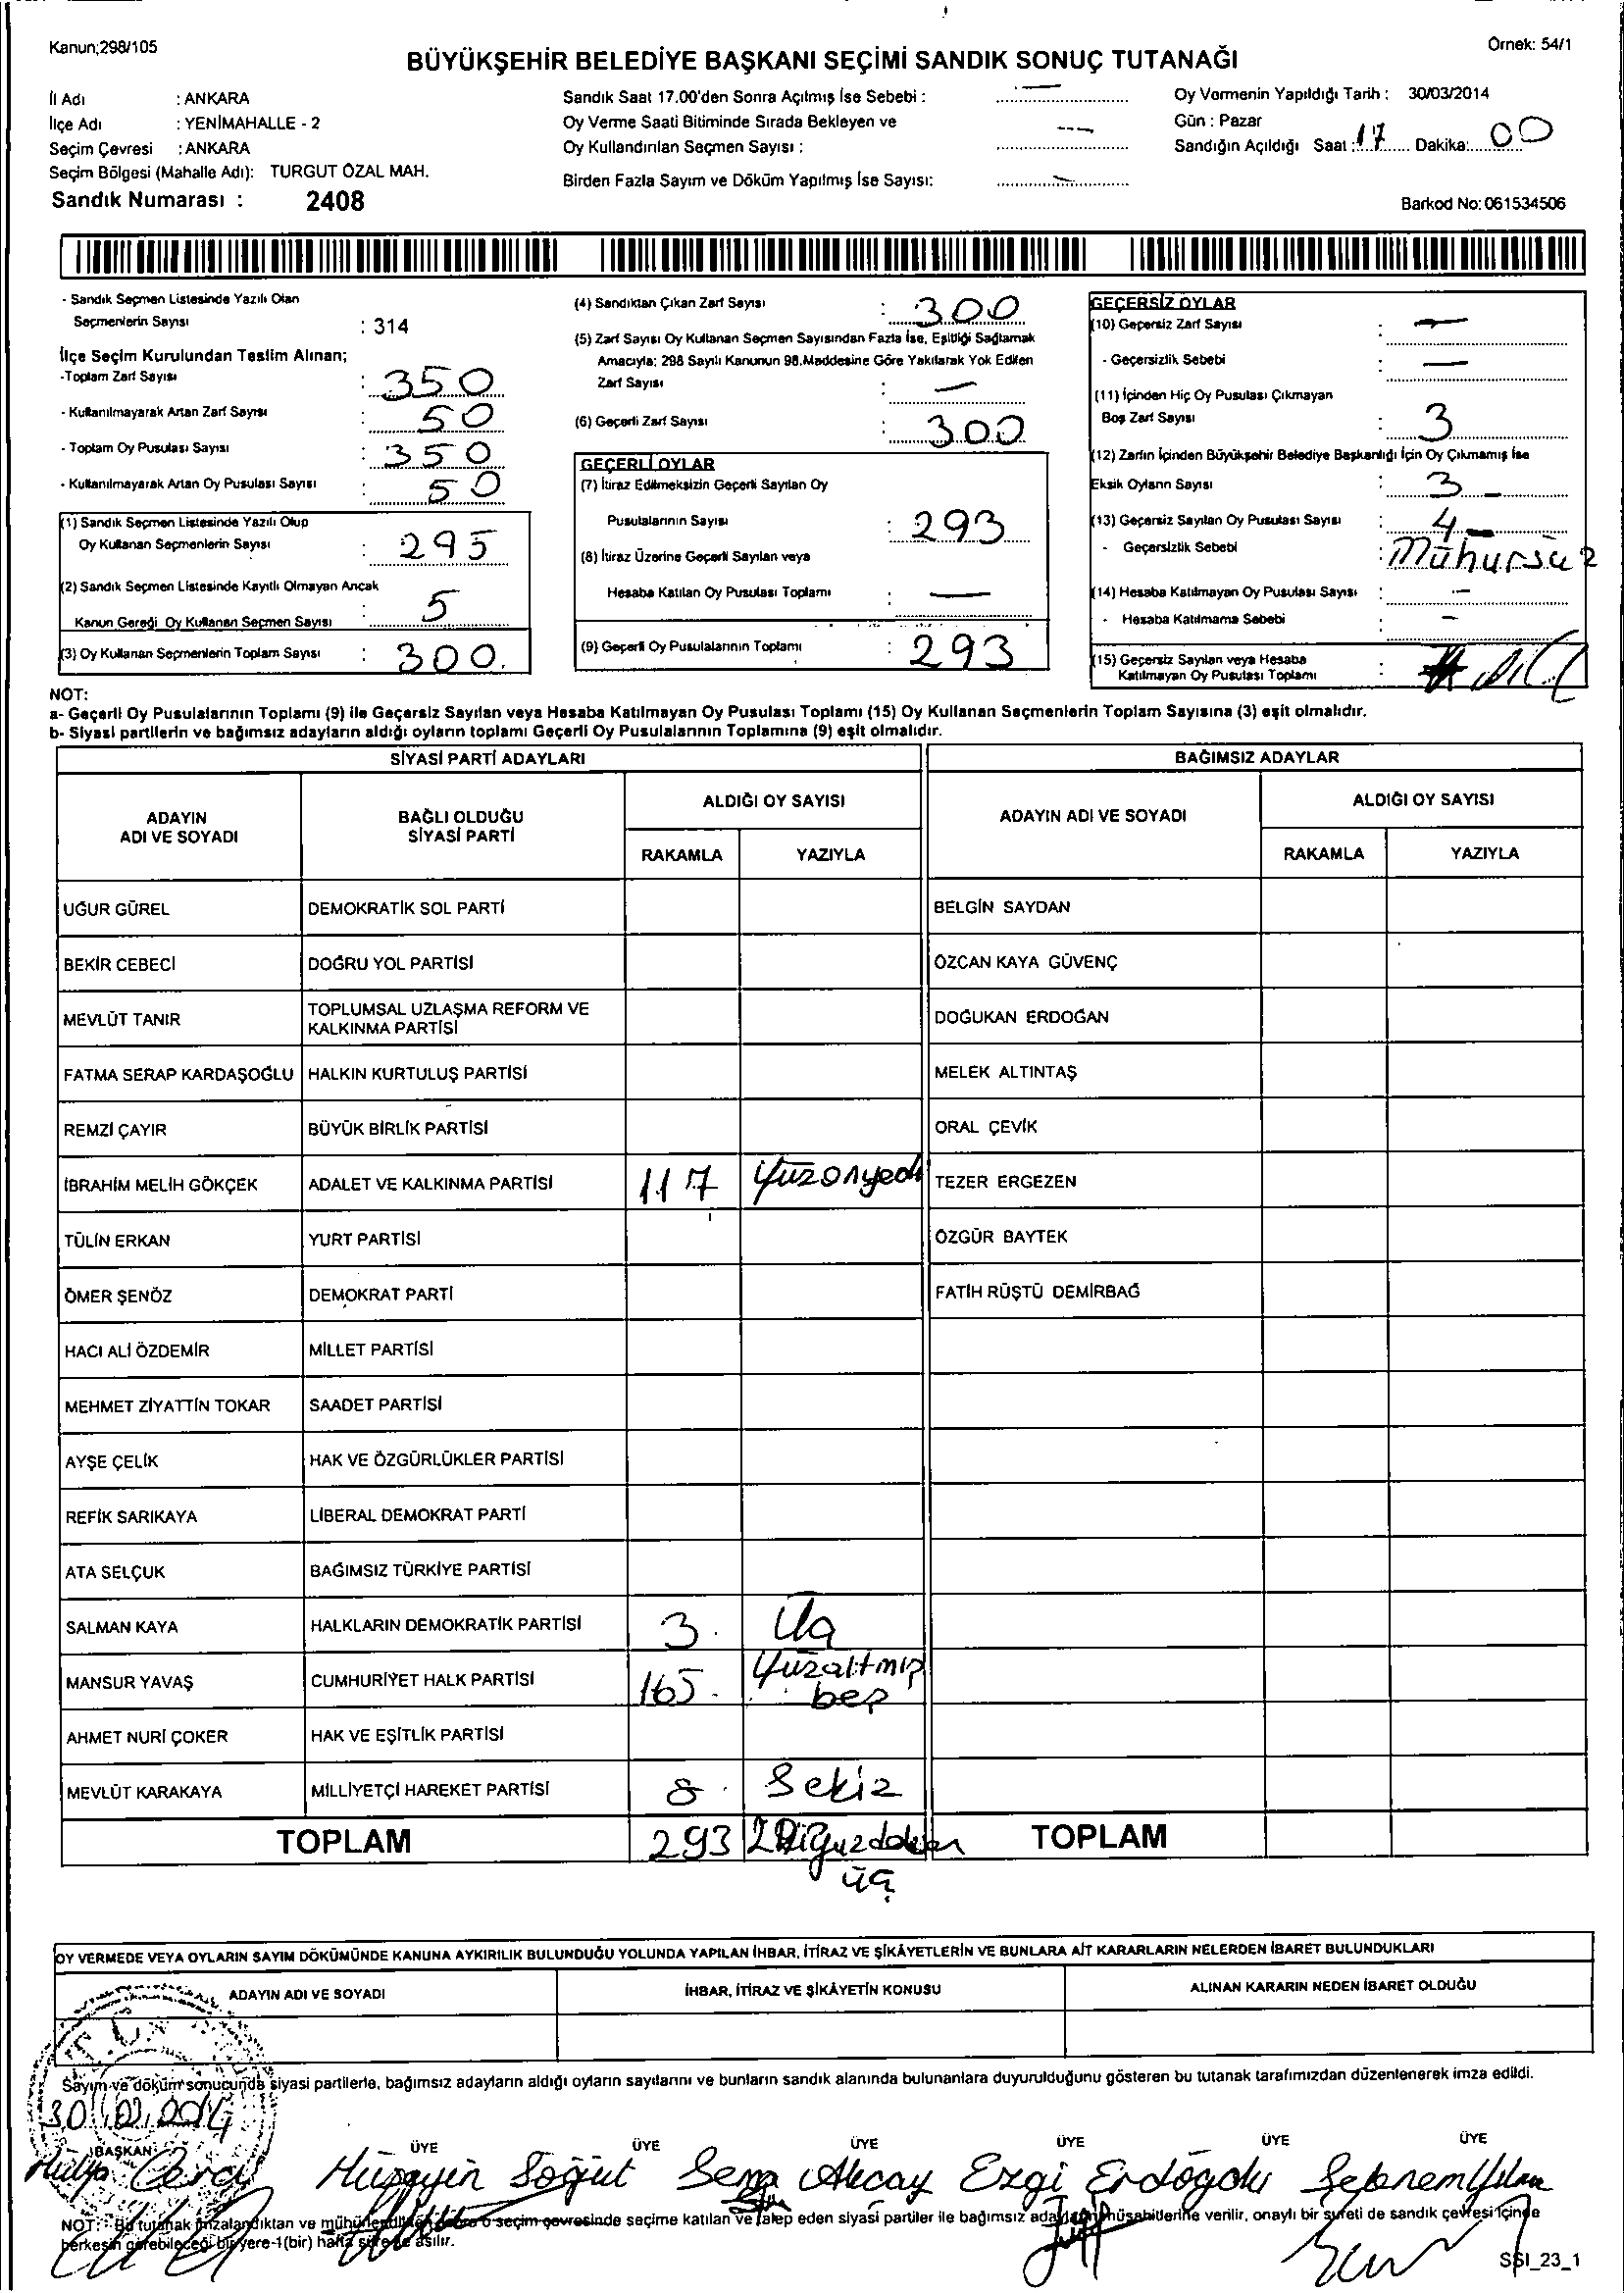 Kanun;298/105
Örnek: 54/1
BÜYÜKŞEHİR BELEDİYE BAŞKANI SEÇİMİ SANDIK SONUÇ TUTANAĞI
İl Adı : ANKARA
İlçe Adı : YENİMAHALLE - 2
Seçim Çevresi : ANKARA
Seçim Bölgesi (Mahalle Adı): TURGUT ÖZAL MAH.
Sandık Numarası : 2408
Sandık Saat 17.00'den Sonra Açılmış İse Sebebi : —
Oy Verme Saati Bitiminde Sırada Bekleyen ve
Oy Kullandırılan Seçmen Sayısı : —
Birden Fazla Sayım ve Döküm Yapılmış İse Sayısı: —
Oy Vermenin Yapıldığı Tarih : 30/03/2014
Gün : Pazar
Sandığın Açıldığı Saat : 17 Dakika: 00
Barkod No: 061534506
- Sandık Seçmen Listesinde Yazılı Olan
Seçmenlerin Sayısı : 314
İlçe Seçim Kurulundan Teslim Alınan;
-Toplam Zarf Sayısı : 350
- Kullanılmayarak Artan Zarf Sayısı : 50
- Toplam Oy Pusulası Sayısı : 350
- Kullanılmayarak Artan Oy Pusulası Sayısı : 50
(1) Sandık Seçmen Listesinde Yazılı Olup
Oy Kullanan Seçmenlerin Sayısı : 295
(2) Sandık Seçmen Listesinde Kayıtlı Olmayan Ancak
Kanun Gereği Oy Kullanan Seçmen Sayısı : 5
(3) Oy Kullanan Seçmenlerin Toplam Sayısı : 300.
(4) Sandıktan Çıkan Zarf Sayısı : 300
(5) Zarf Sayısı Oy Kullanan Seçmen Sayısından Fazla İse, Eşitliği Sağlamak
Amacıyla; 298 Sayılı Kanunun 98.Maddesine Göre Yakılarak Yok Edilen
Zarf Sayısı : —
(6) Geçerli Zarf Sayısı : 300
GEÇERLİ OYLAR
(7) İtiraz Edilmeksizin Geçerli Sayılan Oy
Pusulalarının Sayısı : 293
(8) İtiraz Üzerine Geçerli Sayılan veya
Hesaba Katılan Oy Pusulası Toplamı : —
(9) Geçerli Oy Pusulalarının Toplamı : 293
GEÇERSİZ OYLAR
(10) Geçersiz Zarf Sayısı : —
- Geçersizlik Sebebi : —
(11) İçinden Hiç Oy Pusulası Çıkmayan
Boş Zarf Sayısı : 3
(12) Zarfın İçinden Büyükşehir Belediye Başkanlığı İçin Oy Çıkmamış İse
Eksik Oyların Sayısı : 3 –
(13) Geçersiz Sayılan Oy Pusulası Sayısı : 4 –
- Geçersizlik Sebebi : Mühürsüz
(14) Hesaba Katılmayan Oy Pusulası Sayısı : —
- Hesaba Katılmama Sebebi : —
(15) Geçersiz Sayılan veya Hesaba
Katılmayan Oy Pusulası Toplamı :
NOT:
a- Geçerli Oy Pusulalarının Toplamı (9) ile Geçersiz Sayılan veya Hesaba Katılmayan Oy Pusulası Toplamı (15) Oy Kullanan Seçmenlerin Toplam Sayısına (3) eşit olmalıdır.
b- Siyasi partilerin ve bağımsız adayların aldığı oyların toplamı Geçerli Oy Pusulalarının Toplamına (9) eşit olmalıdır.
SİYASİ PARTİ ADAYLARI
ADAYIN ADI VE SOYADI BAĞLI OLDUĞU SİYASİ PARTİ ALDIĞI OY SAYISI
RAKAMLA YAZIYLA
UĞUR GÜREL DEMOKRATİK SOL PARTİ
BEKİR CEBECİ DOĞRU YOL PARTİSİ
MEVLÜT TANIR TOPLUMSAL UZLAŞMA REFORM VE
KALKINMA PARTİSİ
FATMA SERAP KARDAŞOĞLU HALKIN KURTULUŞ PARTİSİ
REMZİ ÇAYIR BÜYÜK BİRLİK PARTİSİ
İBRAHİM MELİH GÖKÇEK ADALET VE KALKINMA PARTİSİ 117 Yüzonyedi
TÜLİN ERKAN YURT PARTİSİ
ÖMER ŞENÖZ DEMOKRAT PARTİ
HACI ALİ ÖZDEMİR MİLLET PARTİSİ
MEHMET ZİYATTİN TOKAR SAADET PARTİSİ
AYŞE ÇELİK HAK VE ÖZGÜRLÜKLER PARTİSİ
REFİK SARIKAYA LİBERAL DEMOKRAT PARTİ
ATA SELÇUK BAĞIMSIZ TÜRKİYE PARTİSİ
SALMAN KAYA HALKLARIN DEMOKRATİK PARTİSİ 3 Üç
MANSUR YAVAŞ CUMHURİYET HALK PARTİSİ 165 Yüzaltmış
beş
AHMET NURİ ÇOKER HAK VE EŞİTLİK PARTİSİ
MEVLÜT KARAKAYA MİLLİYETÇİ HAREKET PARTİSİ 8 Sekiz
TOPLAM 293
üç
BAĞIMSIZ ADAYLAR
ADAYIN ADI VE SOYADI ALDIĞI OY SAYISI
RAKAMLA YAZIYLA
BELGİN SAYDAN
ÖZCAN KAYA GÜVENÇ
DOĞUKAN ERDOĞAN
MELEK ALTINTAŞ
ORAL ÇEVİK
TEZER ERGEZEN
ÖZGÜR BAYTEK
FATİH RÜŞTÜ DEMİRBAĞ
TOPLAM
OY VERMEDE VEYA OYLARIN SAYIM DÖKÜMÜNDE KANUNA AYKIRILIK BULUNDUĞU YOLUNDA YAPILAN İHBAR, İTİRAZ VE ŞİKÂYETLERİN VE BUNLARA AİT KARARLARIN NELERDEN İBARET BULUNDUKLARI
ADAYIN ADI VE SOYADI İHBAR, İTİRAZ VE ŞİKÂYETİN KONUSU ALINAN KARARIN NEDEN İBARET OLDUĞU
T.C.
Sayım ve döküm sonucunda siyasi partilerle, bağımsız adayların aldığı oyların sayılarını ve bunların sandık alanında bulunanlara duyurulduğunu gösteren bu tutanak tarafımızdan düzenlenerek imza edildi.
30.03.2014
BAŞKAN ÜYE ÜYE ÜYE ÜYE ÜYE ÜYE
Hülya Hüseyin Söğüt Sema Akcay Ezgi Erdoğdu Şebnem Yılmaz
NOT: Bu tutanak imzalandıktan ve mühürlendikten sonra o seçim çevresinde seçime katılan ve talep eden siyasi partiler ile bağımsız adayların müşahitlerine verilir, onaylı bir sureti de sandık çevresi içinde
herkesin görebileceği bir yere 1(bir) hafta süre ile asılır.
SSI_23_1